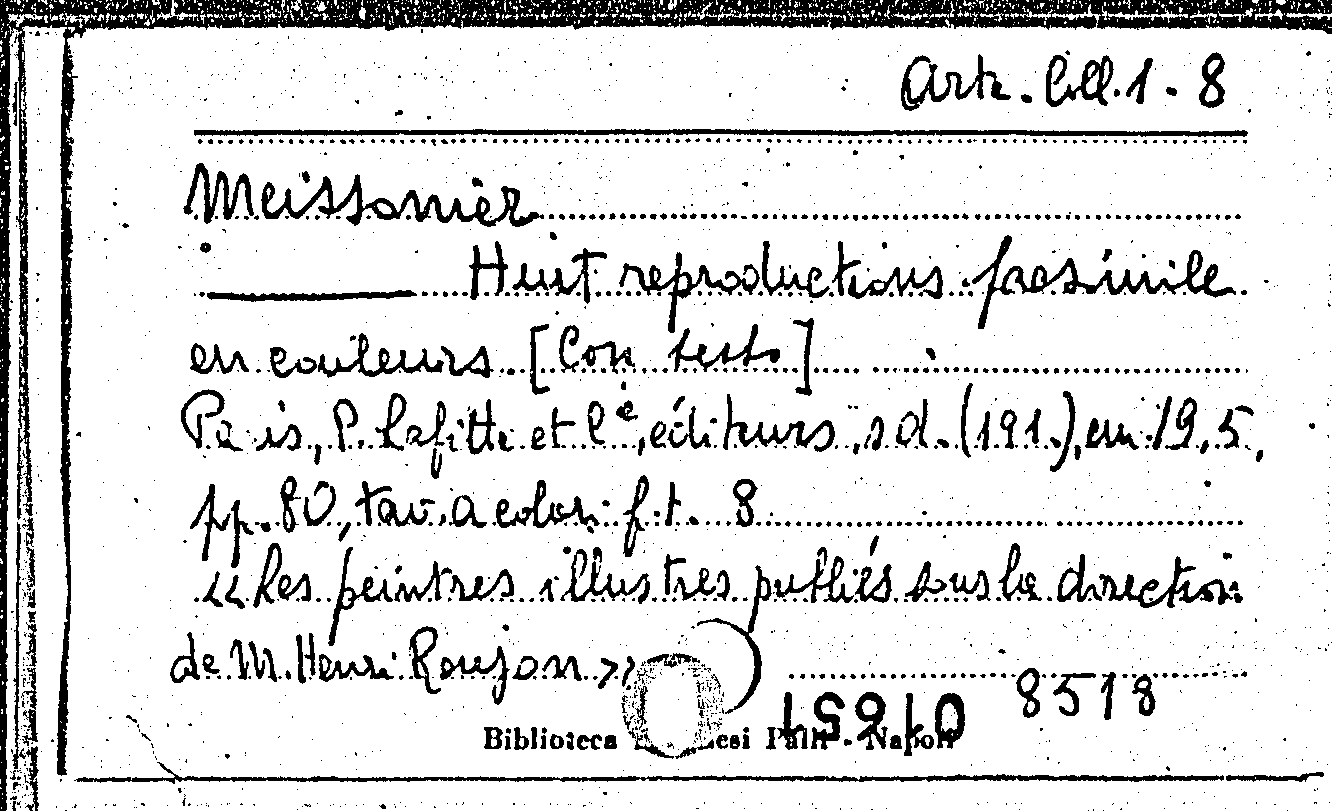 Arte. Coll. 1 - 8
Meissonier
Huit reproductions facsimile
en couleurs. [Con testo]
Paris, P. Lafitte et Cie, éditeurs, s.d. (191.), cm. 19,5,
pp. 80, tav. a colori f.t. 8
«Les peintres illustres publiés sous la direction
de M. Henri Roujon»
8518
Biblioteca Palli - Napoli